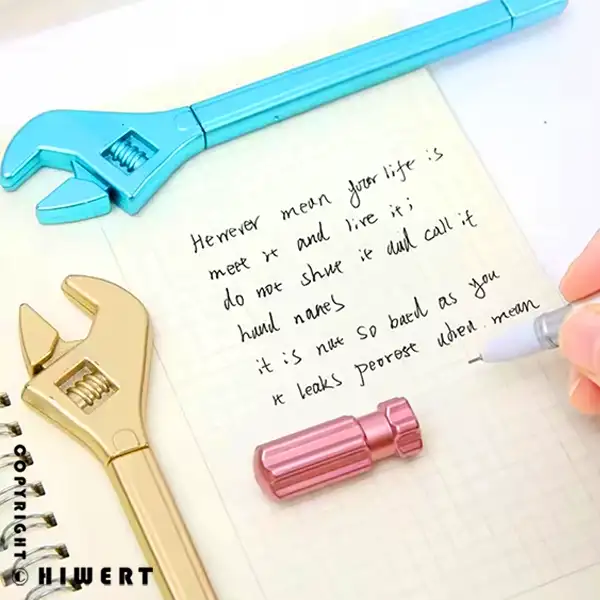 Herrever mean your life is
meet it and live it;
do not shue it and call it
haud nanes
it is not so baed as you
it leaks peorest uhen mean
COPYRIGHT © HIWERT